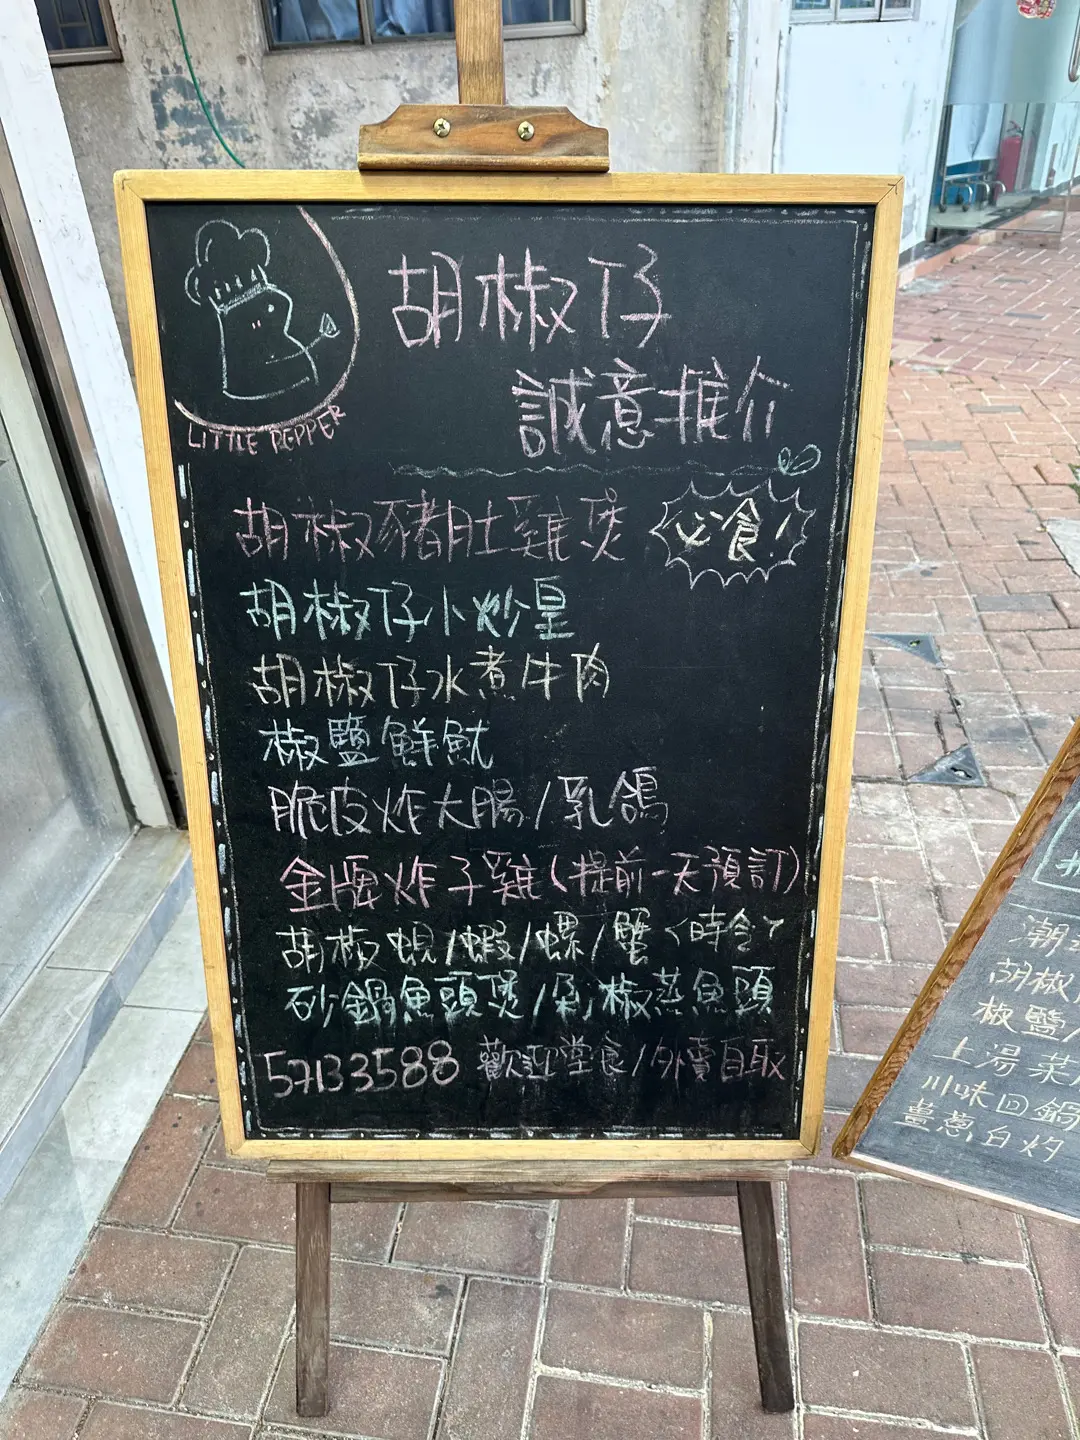 胡椒仔
誠意推介
LITTLE PEPPER
胡椒豬肚雞煲 必食!
胡椒仔小炒皇
胡椒仔水煮牛肉
椒鹽鮮魷
脆皮炸大腸/乳鴿
金牌炸子雞(提前一天預訂)
胡椒蜆/蝦/螺/蟹<時令>
砂鍋魚頭煲/剁椒蒸魚頭
57133588 歡迎堂食/外賣自取
潮
胡椒
椒鹽/
上湯菜
川味回鍋
薑蔥白灼